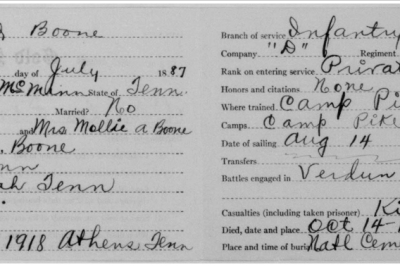 Boone
day of July 1887
McMinn State of Tenn.
Married? No
and Mrs Mollie A Boone
. Boone
Tenn
1918 Athens Tenn
Branch of service Infantry
Company "D" Regiment
Rank on entering service Privat
Honors and citations None
Where trained Camp Pi
Camps. Camp Pike
Date of sailing Aug 14
Transfers
Battles engaged in Verdun
Casualties (including taken prisoner) Ki
Died, date and place Oct 14-1
Place and time of burial Natl Cem